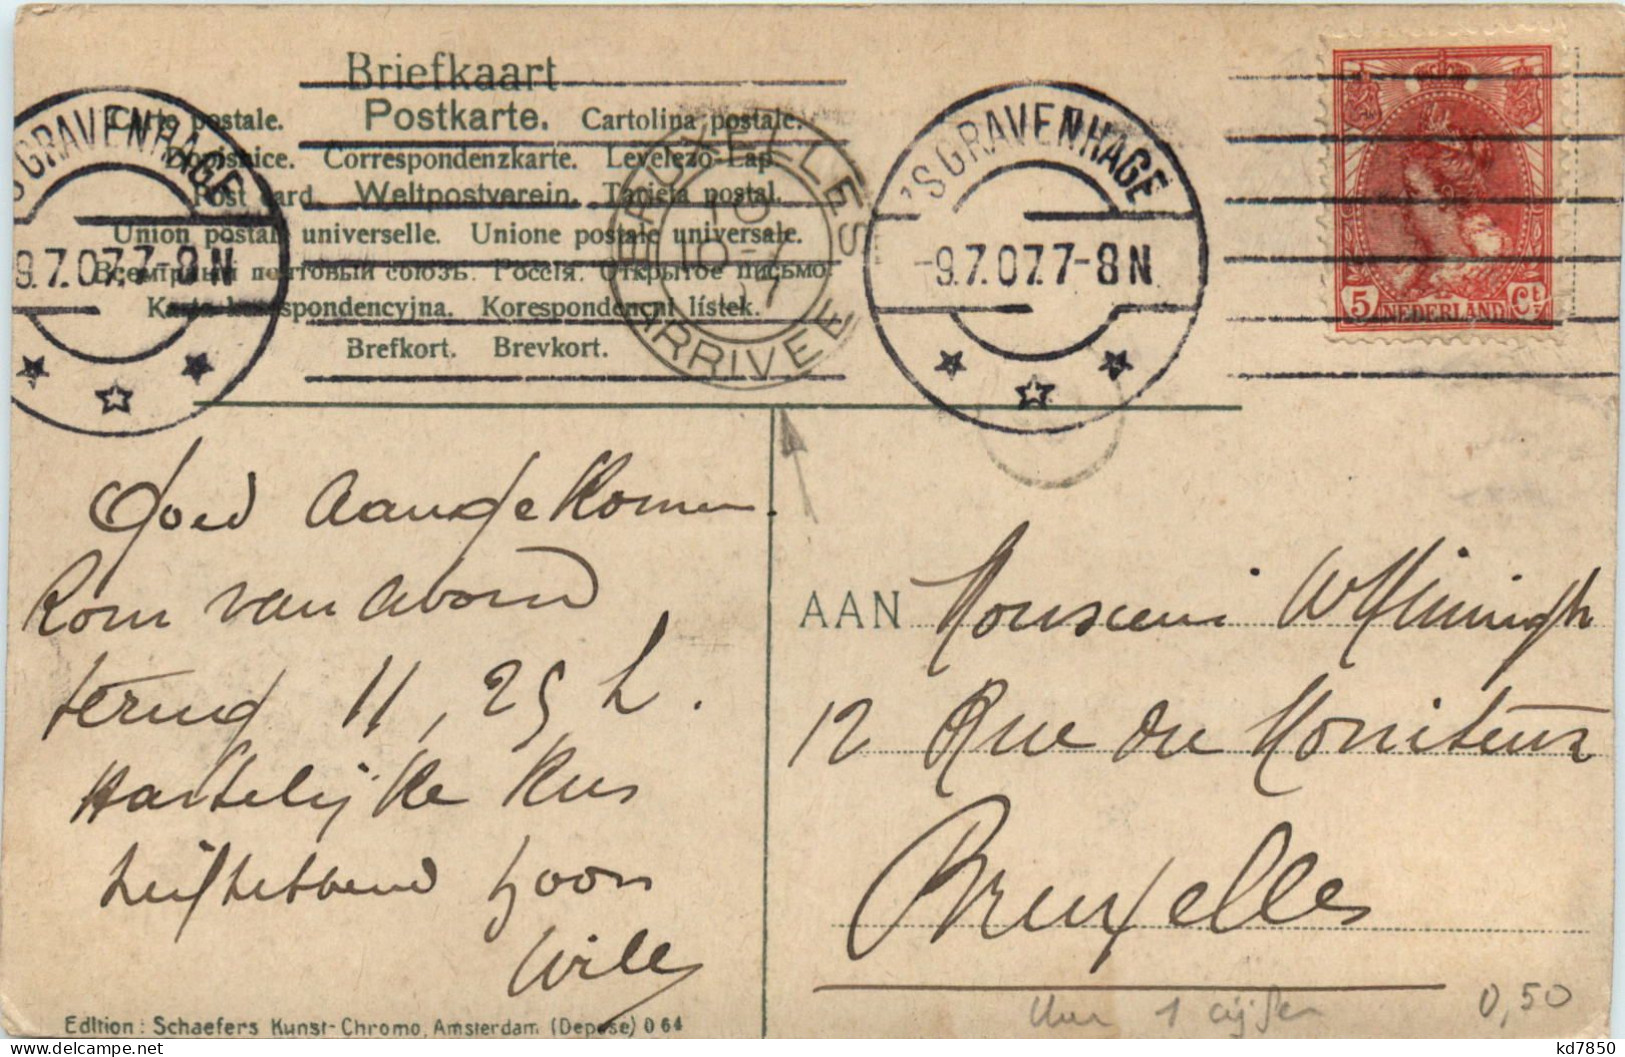 Briefkaart
Carte postale. Postkarte. Cartolina postale.
Dopisnice. Correspondenzkarte. Levelezö-Lap.
Post card. Weltpostverein. Tarjeta postal.
Union postale universelle. Unione postale universale.
Всемірный почтовый союзъ. Россія. Открытое письмо.
Karta korespondencyjna. Korespondenční lístek.
Brefkort. Brevkort.
'S GRAVENHAGE
9.7.07.7-8N
BRUXELLES
10
ARRIVEE
'S GRAVENHAGE
-9.7.07.7-8N
5 NEDERLAND Ct
Goed aangekomen.
Kom van avond
terug 11,25 h.
Hartelijke Kus
Liefhebbend Zoon
Willy
AAN Monsieur
12 Rue du Moniteur
Bruxelles
1 cijfer
0,50
Edition: Schaefers Kunst-Chromo, Amsterdam (Depose) 0 64
kd7850